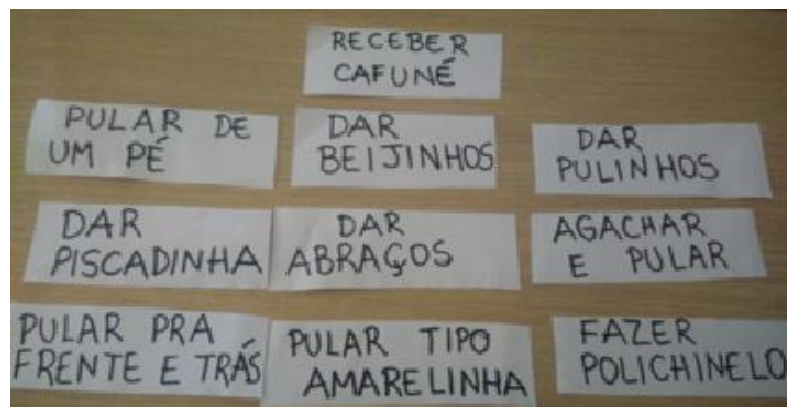 RECEBER
CAFUNÉ
PULAR DE
UM PÉ
DAR
BEIJINHOS
DAR
PULINHOS
DAR
PISCADINHA
DAR
ABRAÇOS
AGACHAR
E PULAR
PULAR PRA
FRENTE E TRÁS
PULAR TIPO
AMARELINHA
FAZER
POLICHINELO